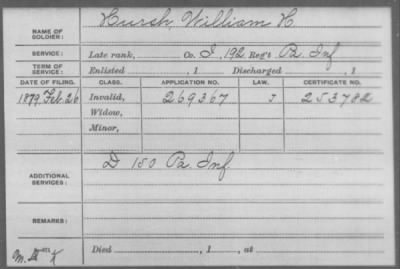 NAME OF SOLDIER: Hursh, William H
SERVICE: Late rank, Co. I, 192 Reg't Pa. Inf
TERM OF SERVICE: Enlisted , 1 Discharged , 1
DATE OF FILING. CLASS. APPLICATION NO. LAW. CERTIFICATE NO.
1879. Feb. 26 Invalid, 269367 J 253782
Widow,
Minor,
ADDITIONAL SERVICES: D 150 Pa. Inf
REMARKS:
Died , 1 , at